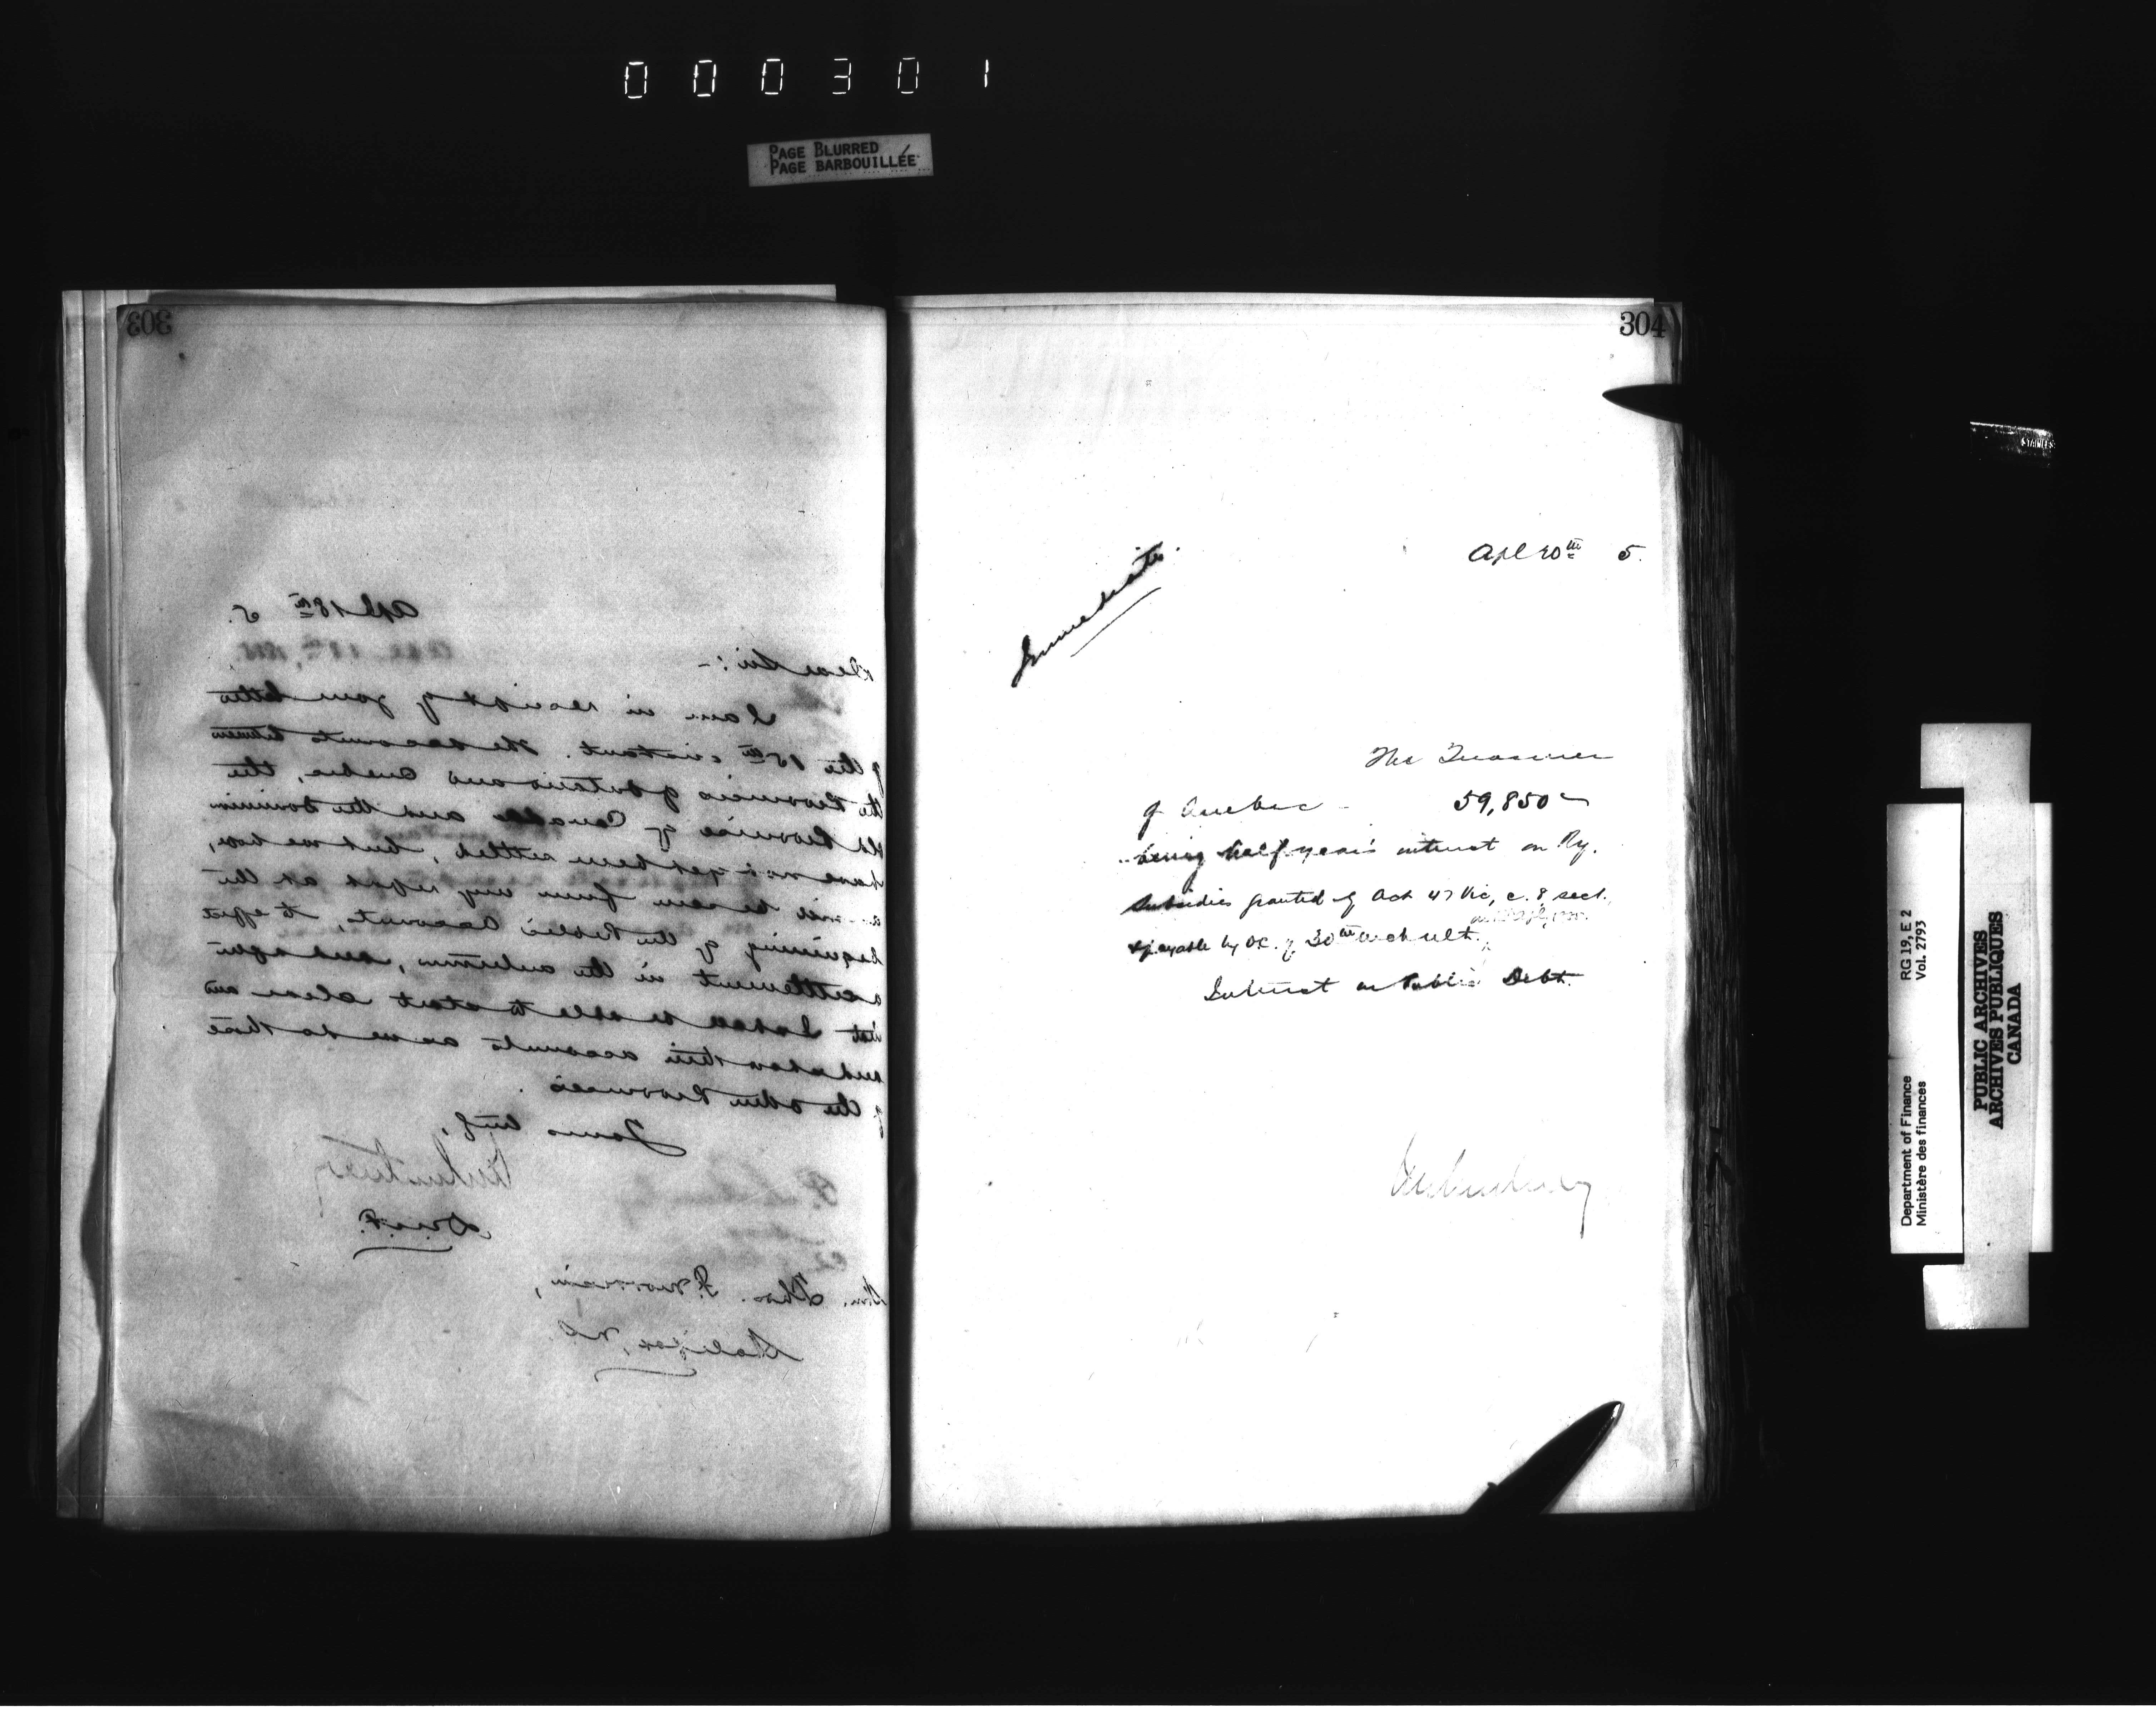 000301
PAGE BLURRED
PAGE BARBOUILLÉE
303
Apl 18th 5.
Dear Sir:-
I am in receipt of your letter
of the 15th instant. The accounts between
the Provinces of Ontario and Quebec, the
old Province of Canada and the Dominion
have not yet been settled, but we have,
as will be seen from my report at the
beginning of the Public Accounts, to effect
a settlement in the autumn, and after
that I shall be able to start clear and
and show their accounts as we do those
of the other Provinces.
Yours truly,
D.M.F.
Thos. F. Morrison,
Halifax, N.S.
304
Apl 20th 5.
Immediate.
The Treasurer
of Quebec - 59,850
being half year's interest on Ry.
Subsidies granted by Act 47 Vic, c. 8 sect.
payable by O.C. of 30th ult.
Interest on Public Debt.
STAINLESS
Department of Finance RG 19, E 2
Ministère des finances Vol. 2793
PUBLIC ARCHIVES
ARCHIVES PUBLIQUES
CANADA